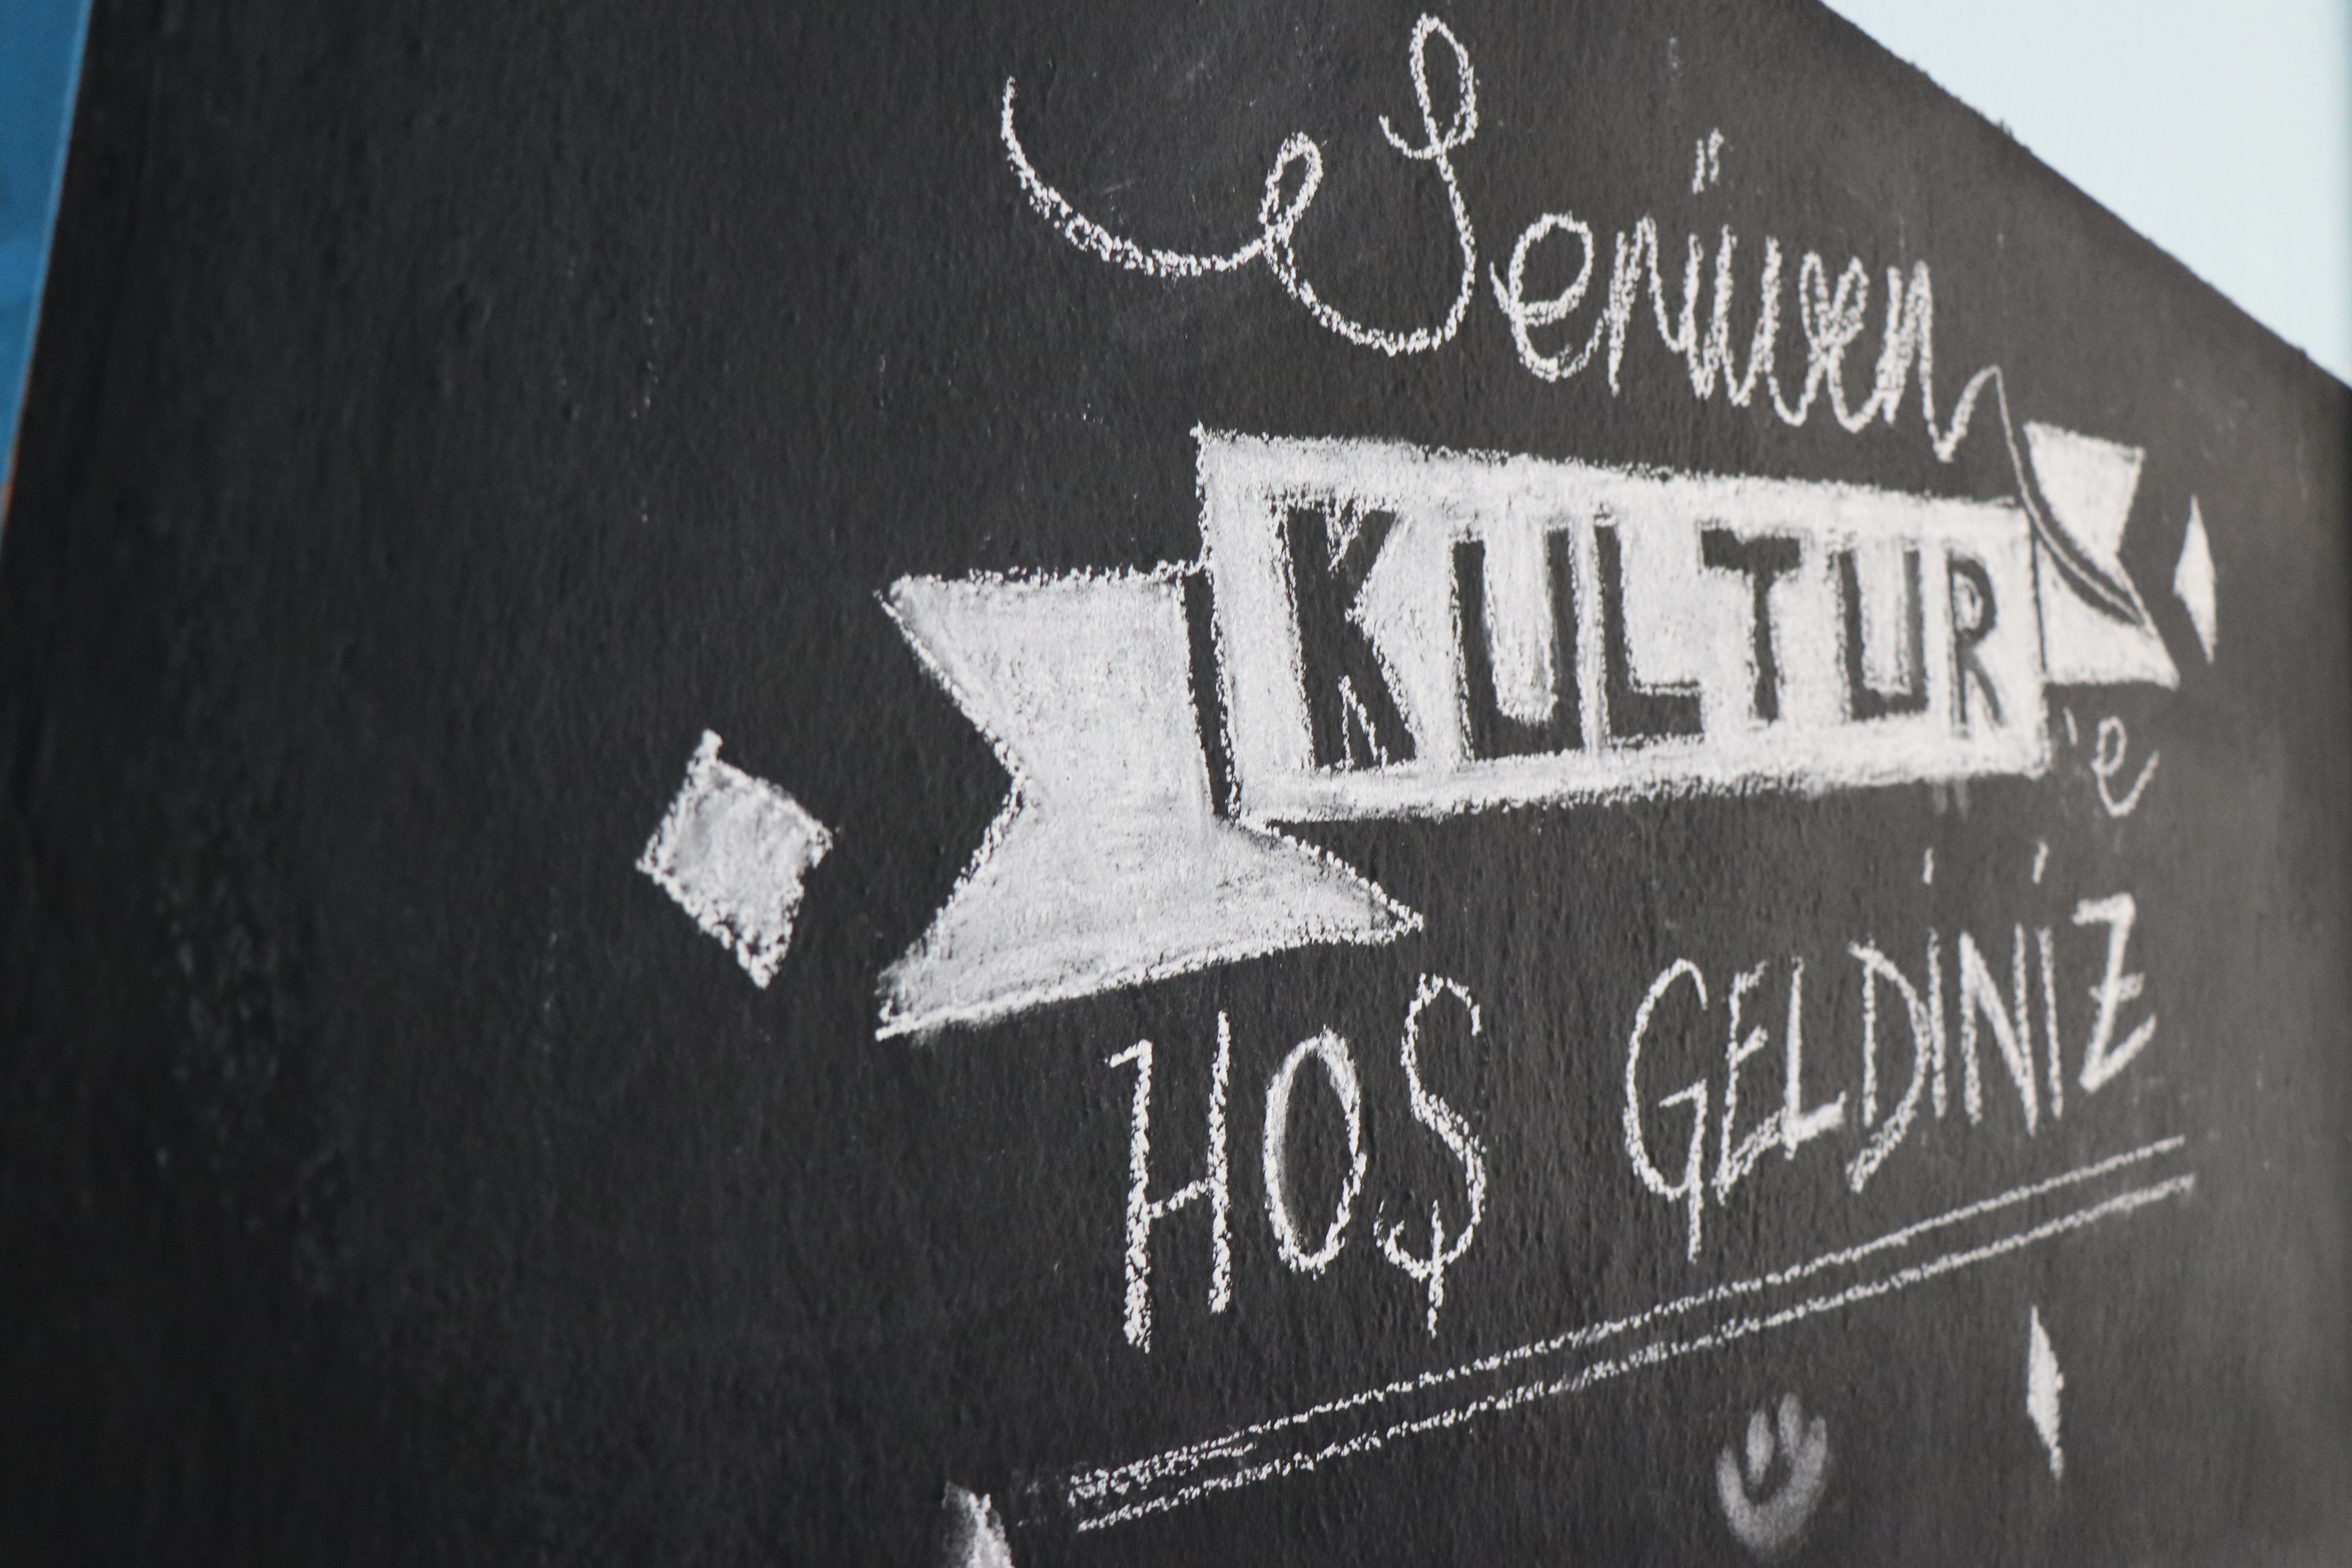 Serüven
KULTUR
'e
HOŞ GELDİNİZ